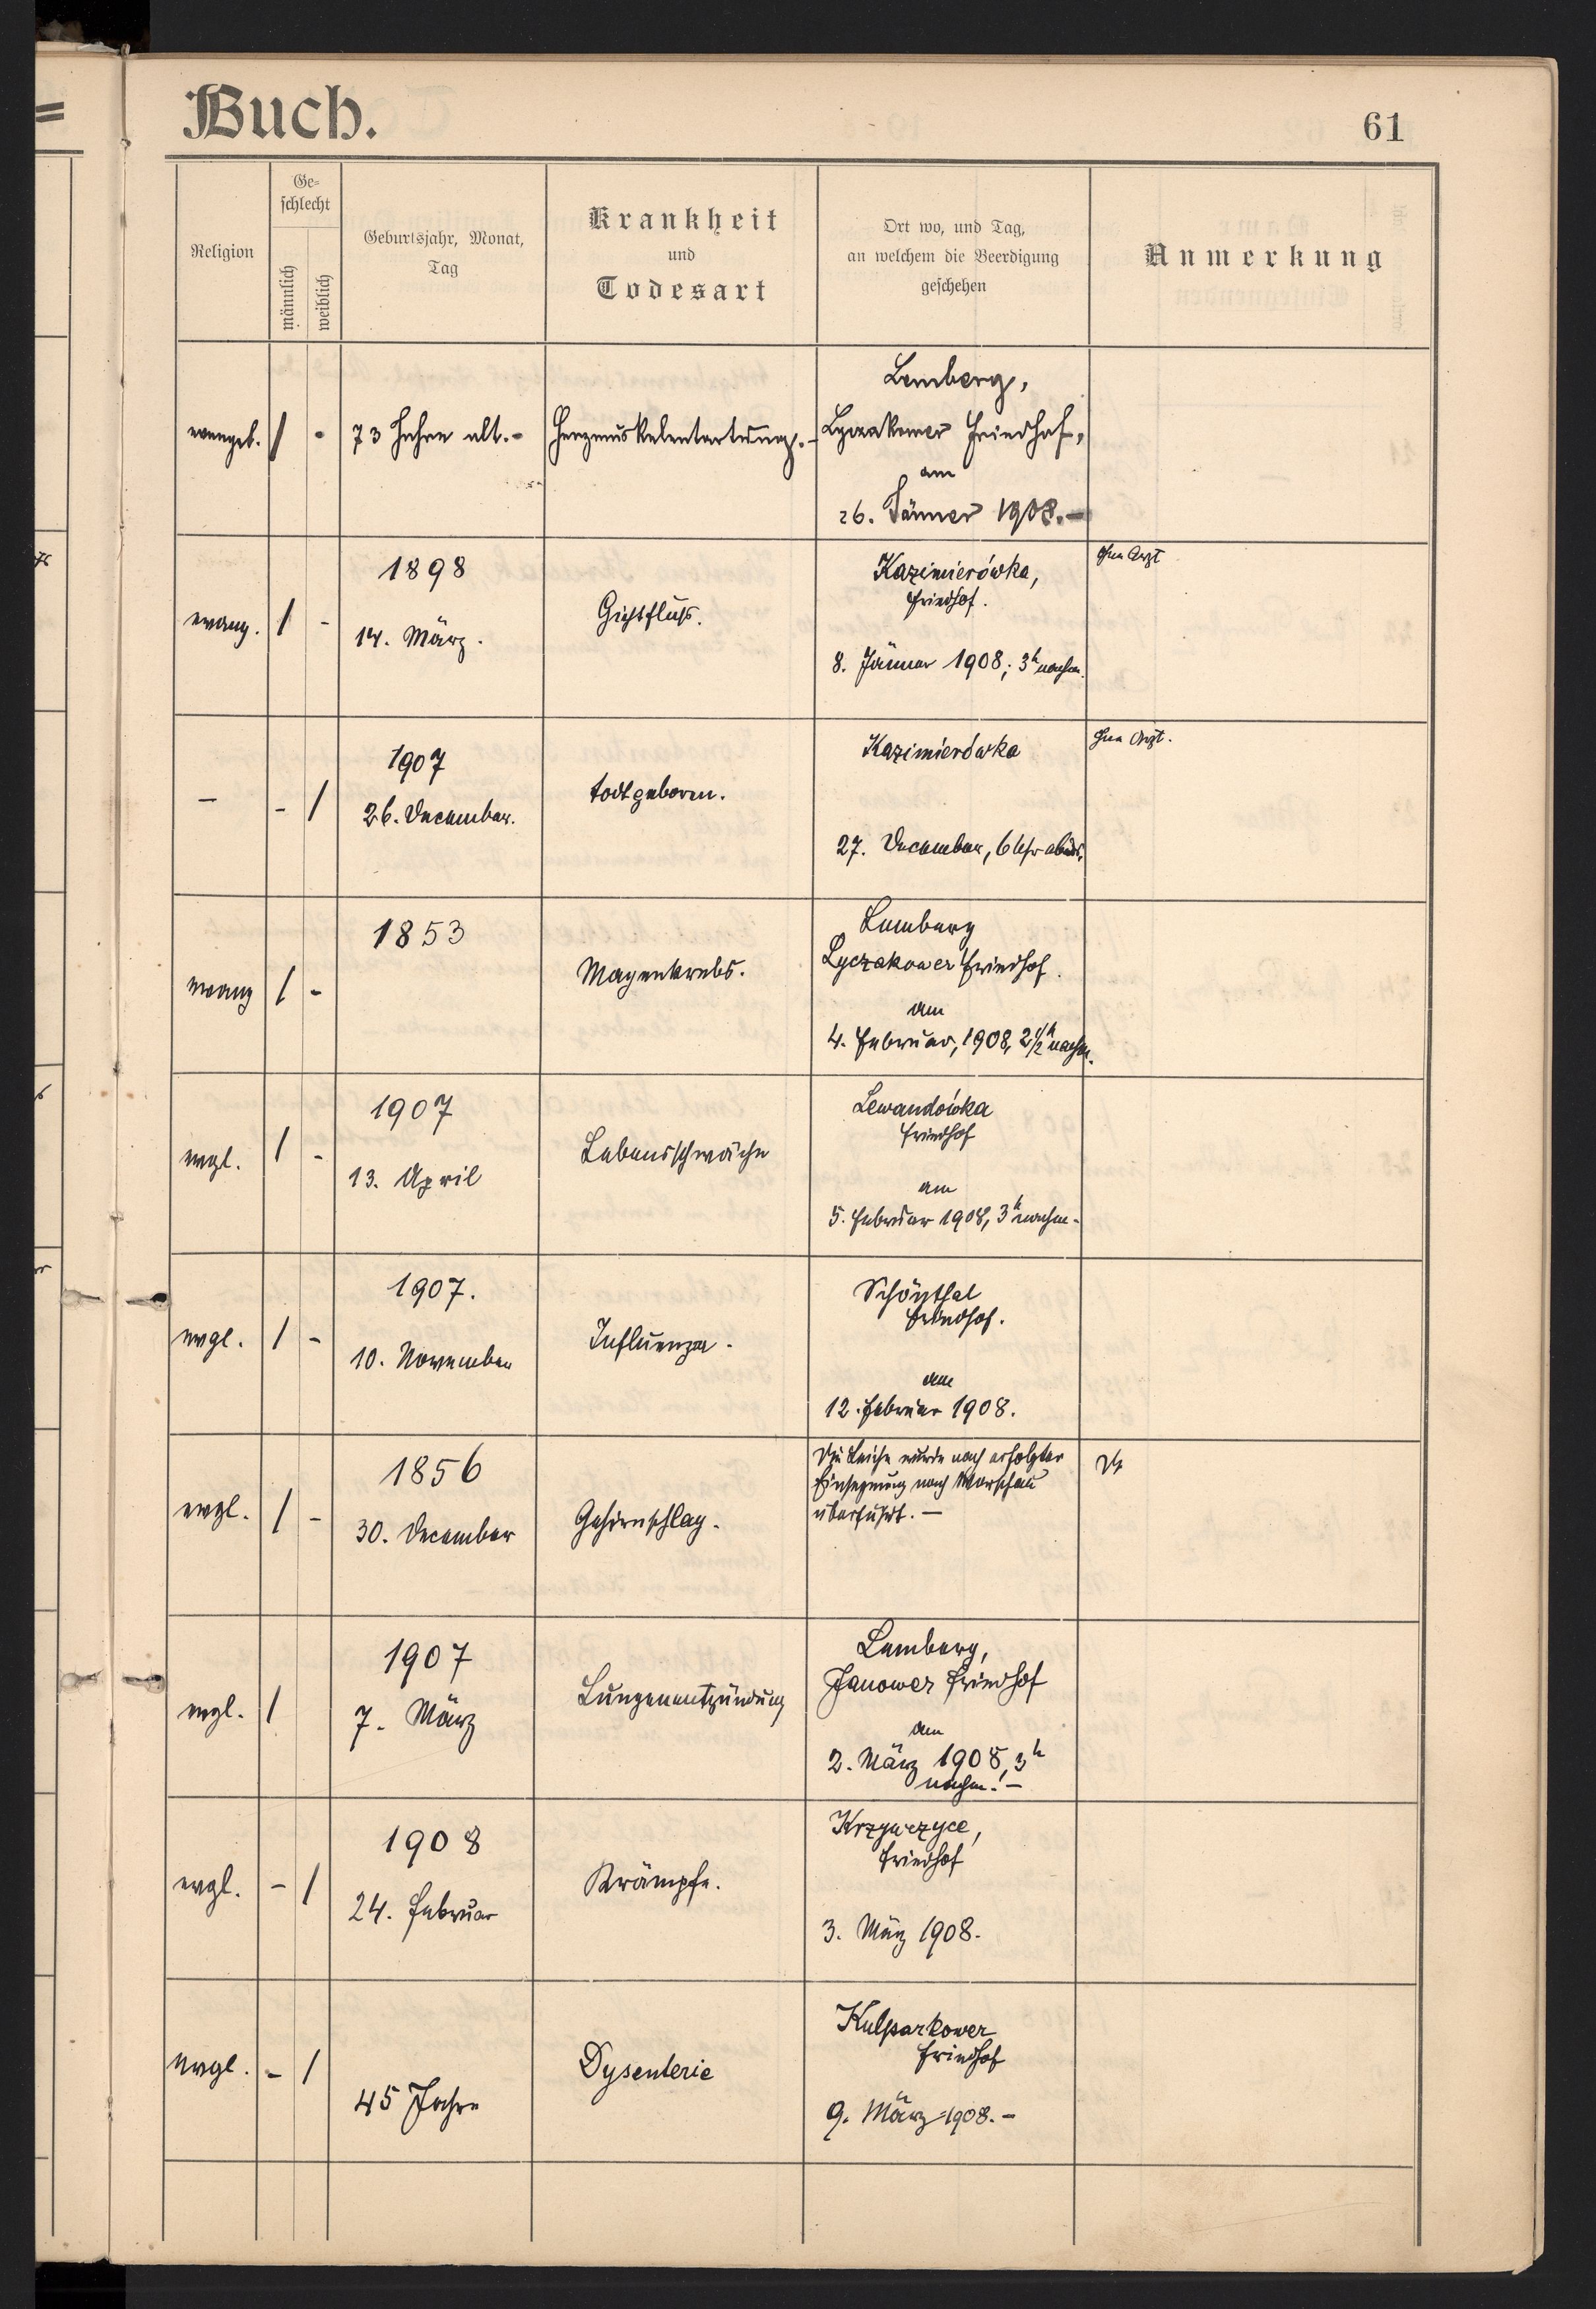 Buch.
61
Religion
Ge-
schlecht
männlich
weiblich
Geburtsjahr, Monat,
Tag
Krankheit
und
Todesart
Ort wo, und Tag,
an welchem die Beerdigung
geschehen
Anmerkung
evangel. / - 73 Jahre alt. - Herzmuskelentartung. -
Lemberg,
Lyczakower Friedhof,
am
26. Jänner 1908. -
evang. / -
1898
14. März.
Gichtfluß.
Kazimierówka,
Friedhof.
8. Jänner 1908; 3h nachm.
Arzt
- - /
1907
26. December.
todtgeboren.
Kazimierówka
27. December, 6 Uhr abds.
Arzt.
evang / -
1853
Magenkrebs.
Lemberg
Lyczakower Friedhof.
am
4. Februar, 1908, 2 1/2 h nachm.
evgl. / -
1907
13. April
Lebensschwäche
Lewandówka
Friedhof
am
5. Februar 1908, 3h nachm.
evgl. / -
1907.
10. November
Influenza.
Schönthal
Friedhof.
am
12. Februar 1908.
evgl. / -
1856
30. December
Gehirnschlag.
Die Leiche wurde nach erfolgter
Einsegnung nach Warschau
überführt. -
evgl. /
1907
7. März
Lungenentzündung
Lemberg,
Janower Friedhof
am
2. März 1908, 3h
nachm. -
evgl. - /
1908
24. Februar
Krämpfe.
Krzywczyce,
Friedhof
3. März 1908.
evgl. - /
45 Jahre
Dysenterie
Kulparkower
Friedhof
9. März 1908. -